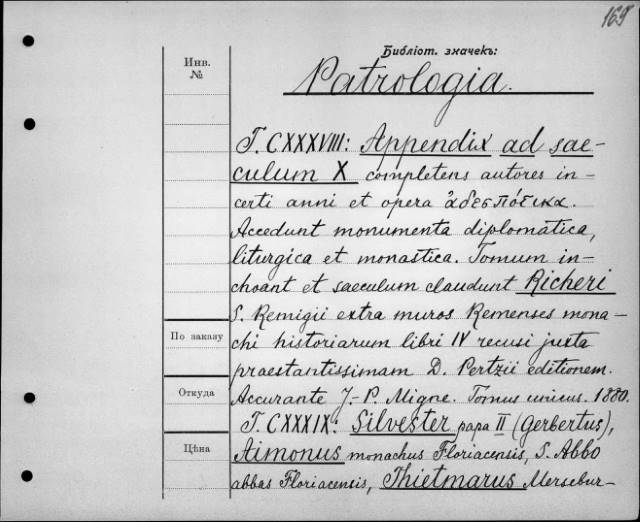 169
Библіот. значекъ:
Инв.
№
Patrologia.
T. CXXXVIII: Appendix ad sae-
culum X completens autores in-
certi anni et opera ἀδεςπότικα.
Accedunt monumenta diplomatica,
liturgica et monastica. Tomum in-
choant et saeculum claudunt Richeri
S. Remigii extra muros Remenses mona-
chi historiarum libri IV recusi juxta
praestantissimam D. Pertzii editionem.
Accurante J.-P. Migne. Tomus unicus. 1880.
T. CXXXIX: Silvester papa II (Gerbertus),
Aimonus monachus Floriacensis, S. Abbo
abbas Floriacensis, Thietmarus Mersebur-
По заказу
Откуда
Цѣна